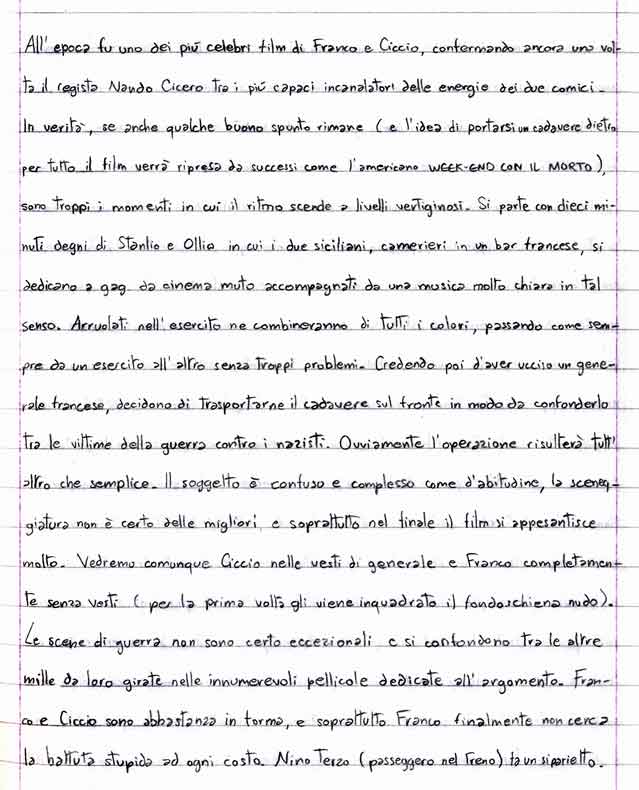 All'epoca fu uno dei più celebri film di Franco e Ciccio, confermando ancora una vol-
ta il regista Nando Cicero tra i più capaci incanalatori delle energie dei due comici.
In verità, se anche qualche buono spunto rimane (e l'idea di portarsi un cadavere dietro
per tutto il film verrà ripresa da successi come l'americano WEEK-END CON IL MORTO),
sono troppi i momenti in cui il ritmo scende a livelli vertiginosi. Si parte con dieci mi-
nuti degni di Stanlio e Ollio in cui i due siciliani, camerieri in un bar francese, si
dedicano a gag da cinema muto accompagnati da una musica molto chiara in tal
senso. Arruolati nell'esercito ne combineranno di tutti i colori, passando come sem-
pre da un esercito all'altro senza troppi problemi. Credendo poi d'aver ucciso un gene-
rale francese, decidono di trasportarne il cadavere sul fronte in modo da confonderlo
tra le vittime della guerra contro i nazisti. Ovviamente l'operazione risulterà tutt'
altro che semplice. Il soggetto è confuso e complesso come d'abitudine, la sceneg-
giatura non è certo delle migliori e soprattutto nel finale il film si appesantisce
molto. Vedremo comunque Ciccio nelle vesti di generale e Franco completamen-
te senza vesti (per la prima volta gli viene inquadrato il fondoschiena nudo).
Le scene di guerra non sono certo eccezionali e si confondono tra le altre
mille da loro girate nelle innumerevoli pellicole dedicate all'argomento. Fran-
co e Ciccio sono abbastanza in forma, e soprattutto Franco finalmente non cerca
la battuta stupida ad ogni costo. Nino Terzo (passeggero nel treno) fa un siparietto.